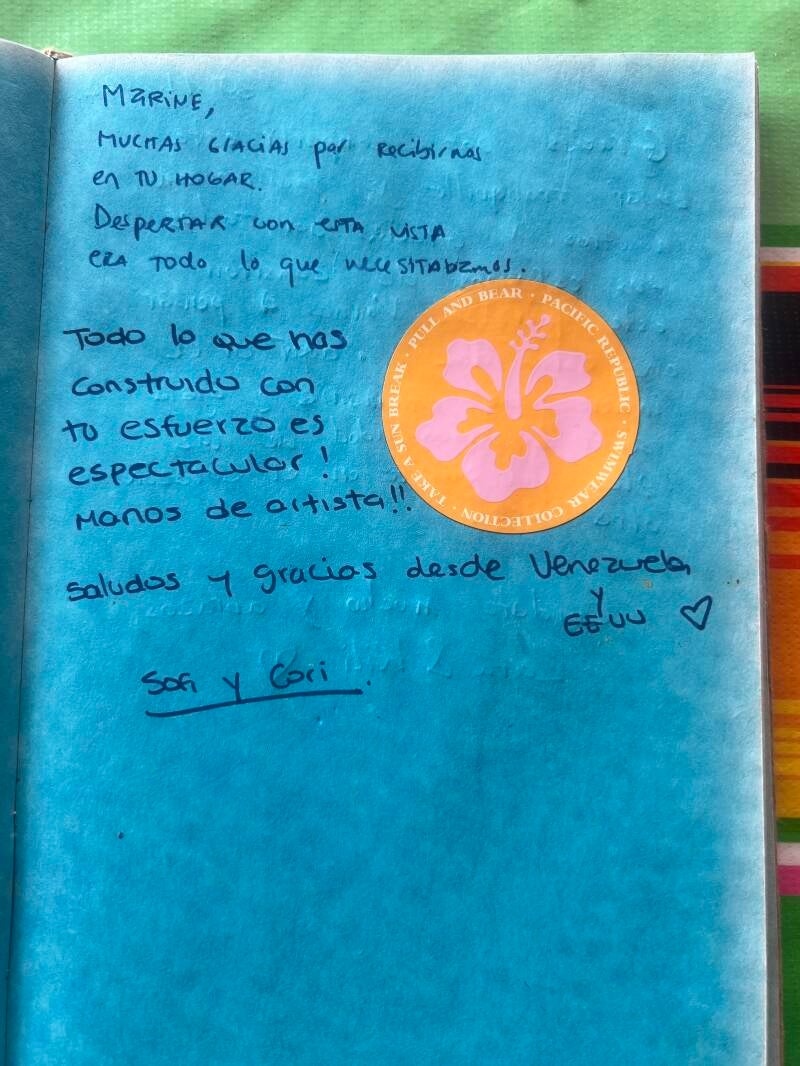 Marine,
Muchas gracias por recibirnos
en tu hogar.
Despertar con esta vista
era todo lo que necesitabamos.
Todo lo que has
construido con
tu esfuerzo es
espectacular!
Manos de artista!!
Saludos y gracias desde Venezuela
y
EEUU ♡
Sofi y Cori.
PULL AND BEAR · PACIFIC REPUBLIC · SWIMWEAR COLLECTION · TAKE A SUN BREAK ·